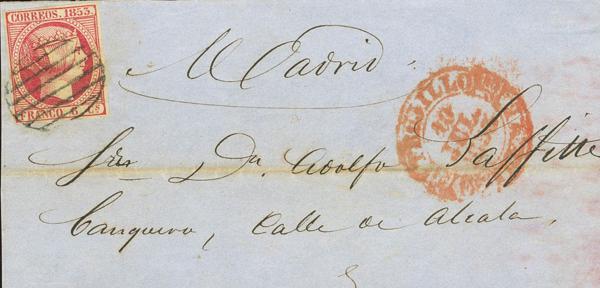 CORREOS. 1853.
FRANCO 6 Cs
Madrid
Sōr Dn. Adolfo Laffitte
Banquero, Calle de Alcala,